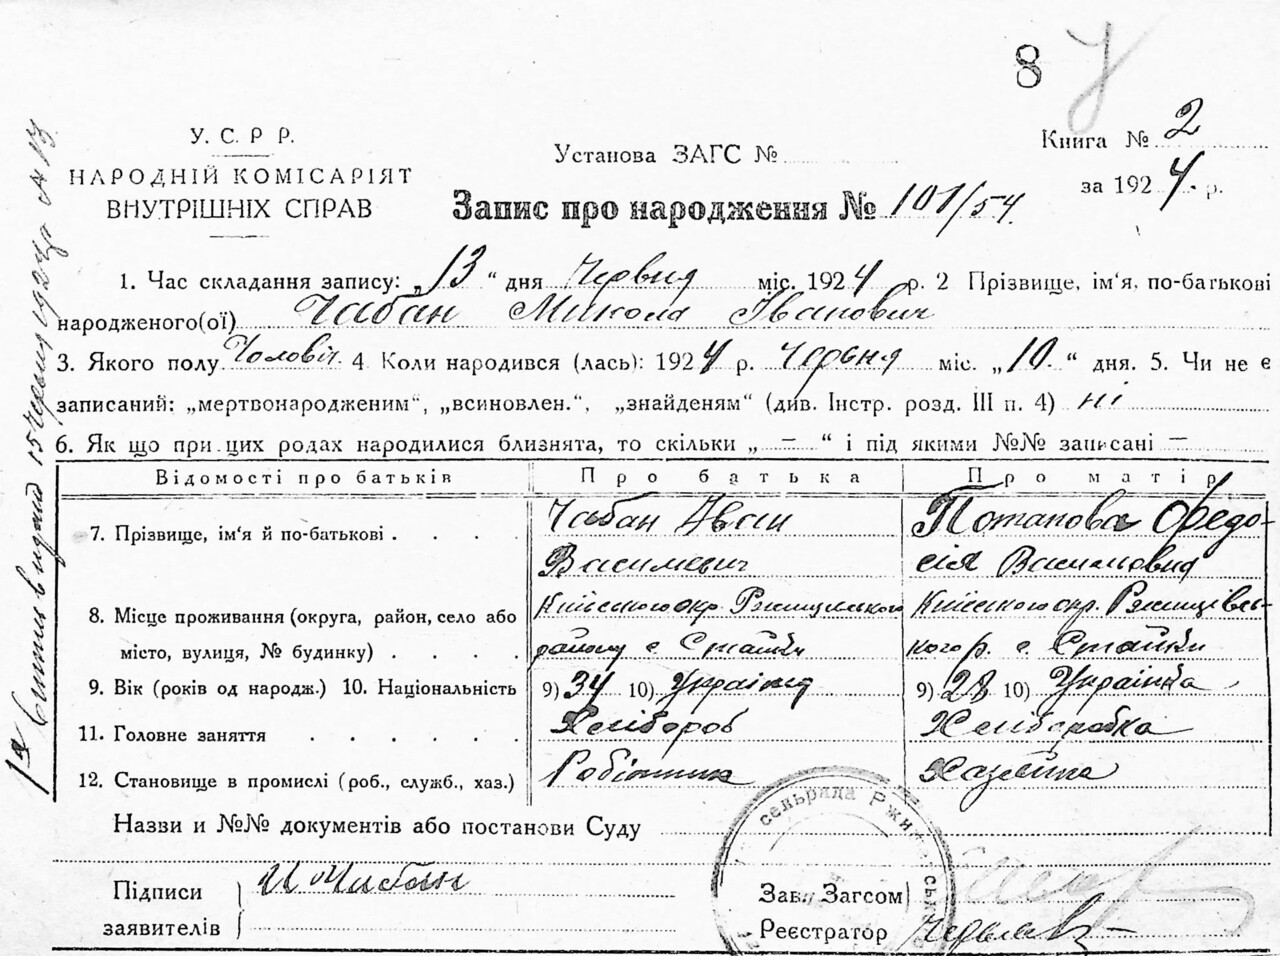 8
У. С. Р Р.
НАРОДНІЙ КОМІСАРІЯТ
ВНУТРІШНІХ СПРАВ
Установа ЗАГС №
Книга № 2
за 1924. р.
Запис про народження № 101/54
1. Час складання запису: „13“ дня Червня міс. 1924 р. 2 Прізвище, ім'я, по-батькові
народженого(ої) Чабан Микола Іванович
3. Якого полу Чоловіч. 4 Коли народився (лась): 1924 р. Червня міс. „10.“ дня. 5. Чи не є
записаний: „мертвонародженим“, „всиновлен.“, „знайденям“ (див. Інстр. розд. III п. 4) ні
6. Як що при цих родах народилися близнята, то скільки „ — “ і під якими №№ записані —
Відомості про батьків Про батька Про матір
7. Прізвище, ім'я й по-батькові . . . . Чабан Іван Потапова Федо-
Василевич сія Василовна
8. Місце проживання (округа, район, село або Київського окр. Ржищивського Київського окр. Ржищівсь-
місто, вулиця, № будинку) . . . . району с. Стайки кого р. с. Стайки
9. Вік (років од народж.) 10. Національність 9) 34 10) Українец 9) 28 10) Українка
11. Головне заняття . . . . . . Хлібороб Хліборобка
12. Становище в промислі (роб., служб., хаз.) Робітник Хазяйка
Назви и №№ документів або постанови Суду
Підписи И Чабан
заявителів
Зав. Загсом
Реєстратор
сельрада Ржищ ськ